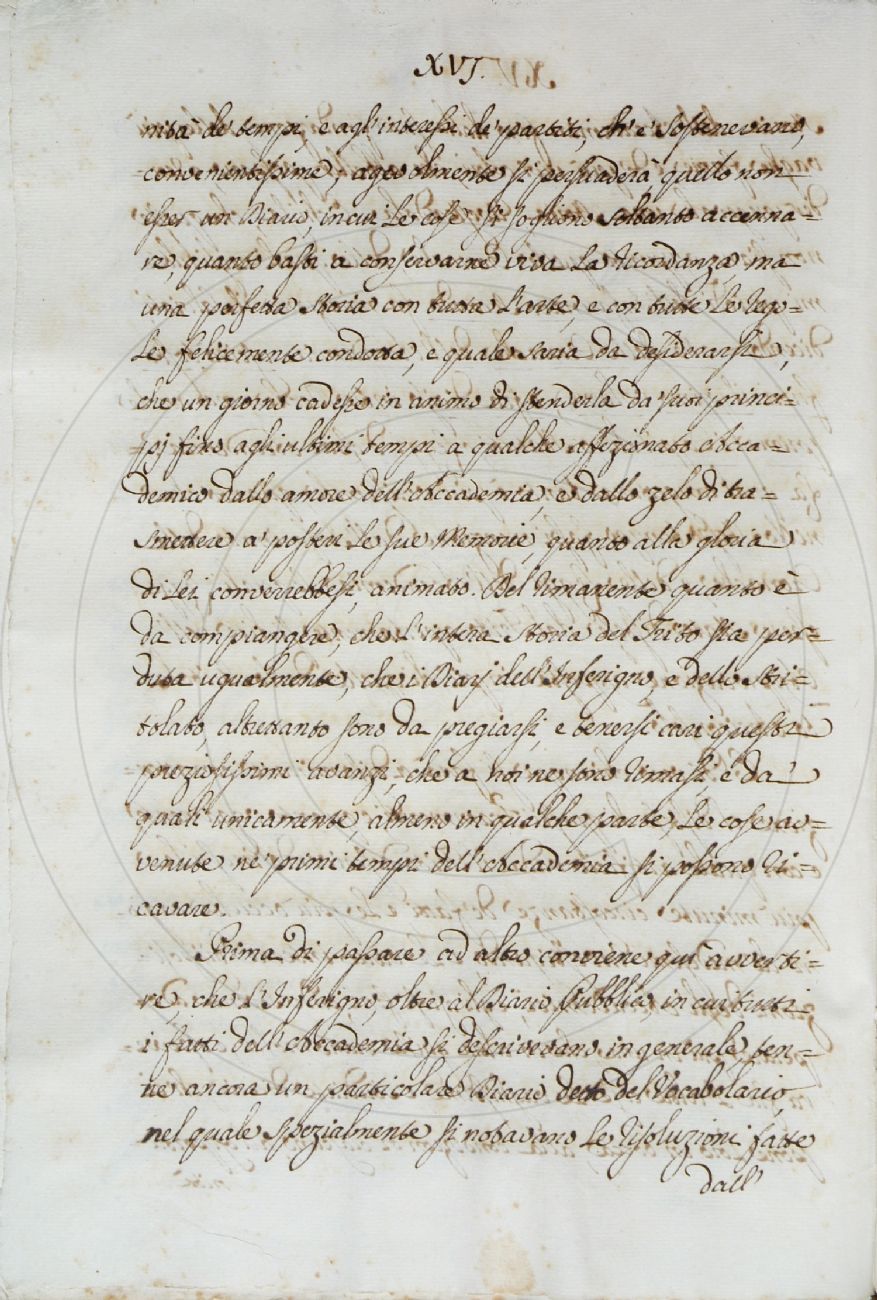 XVI.
nità de' tempi, e agl'interessi de' partiti, ch'e' sostenevano,
convenientissime; agevolmente si persuaderà quello non
esser un Diario, in cui le cose si sogliono soltanto accenna=
re, quanto basti a conservarne viva la ricordanza, ma
una perfetta Storia con tutta l'arte, e con tutte le rego=
le felicemente condotta, e quale saria da desiderarsi,
che un giorno cadesse in animo di stenderla da' suoi princi=
pj fino agli ultimi tempi a qualche affezionato Acca=
demico dallo amore dell'Accademia, e dallo zelo di tra=
smettere a' posteri le sue Memorie, quanto alla gloria
di Lei converrebbesi, animato. Del rimanente quanto è
da compiangere, che l'intera Storia del Trito sia per=
duta ugualmente, che i Diarj dell'Inferigno, e dello Stri=
tolato, altrettanto sono da pregiarsi, e tenersi cari questi
preziosissimi avanzi, che a noi ne sono rimasti, e da'
quali unicamente, almeno in qualche parte, le cose av=
venute ne' primi tempi dell'Accademia si possono ri=
cavare.
Prima di passare ad altro conviene quì avverti=
re, che l'Inferigno, oltre al Diario Pubblico, in cui tutti
i fatti dell'Accademia si descrivevano in generale, ten=
ne ancora un particolare Diario detto del Vocabolario,
nel quale spezialmente si notavano le risoluzioni fatte
dall'